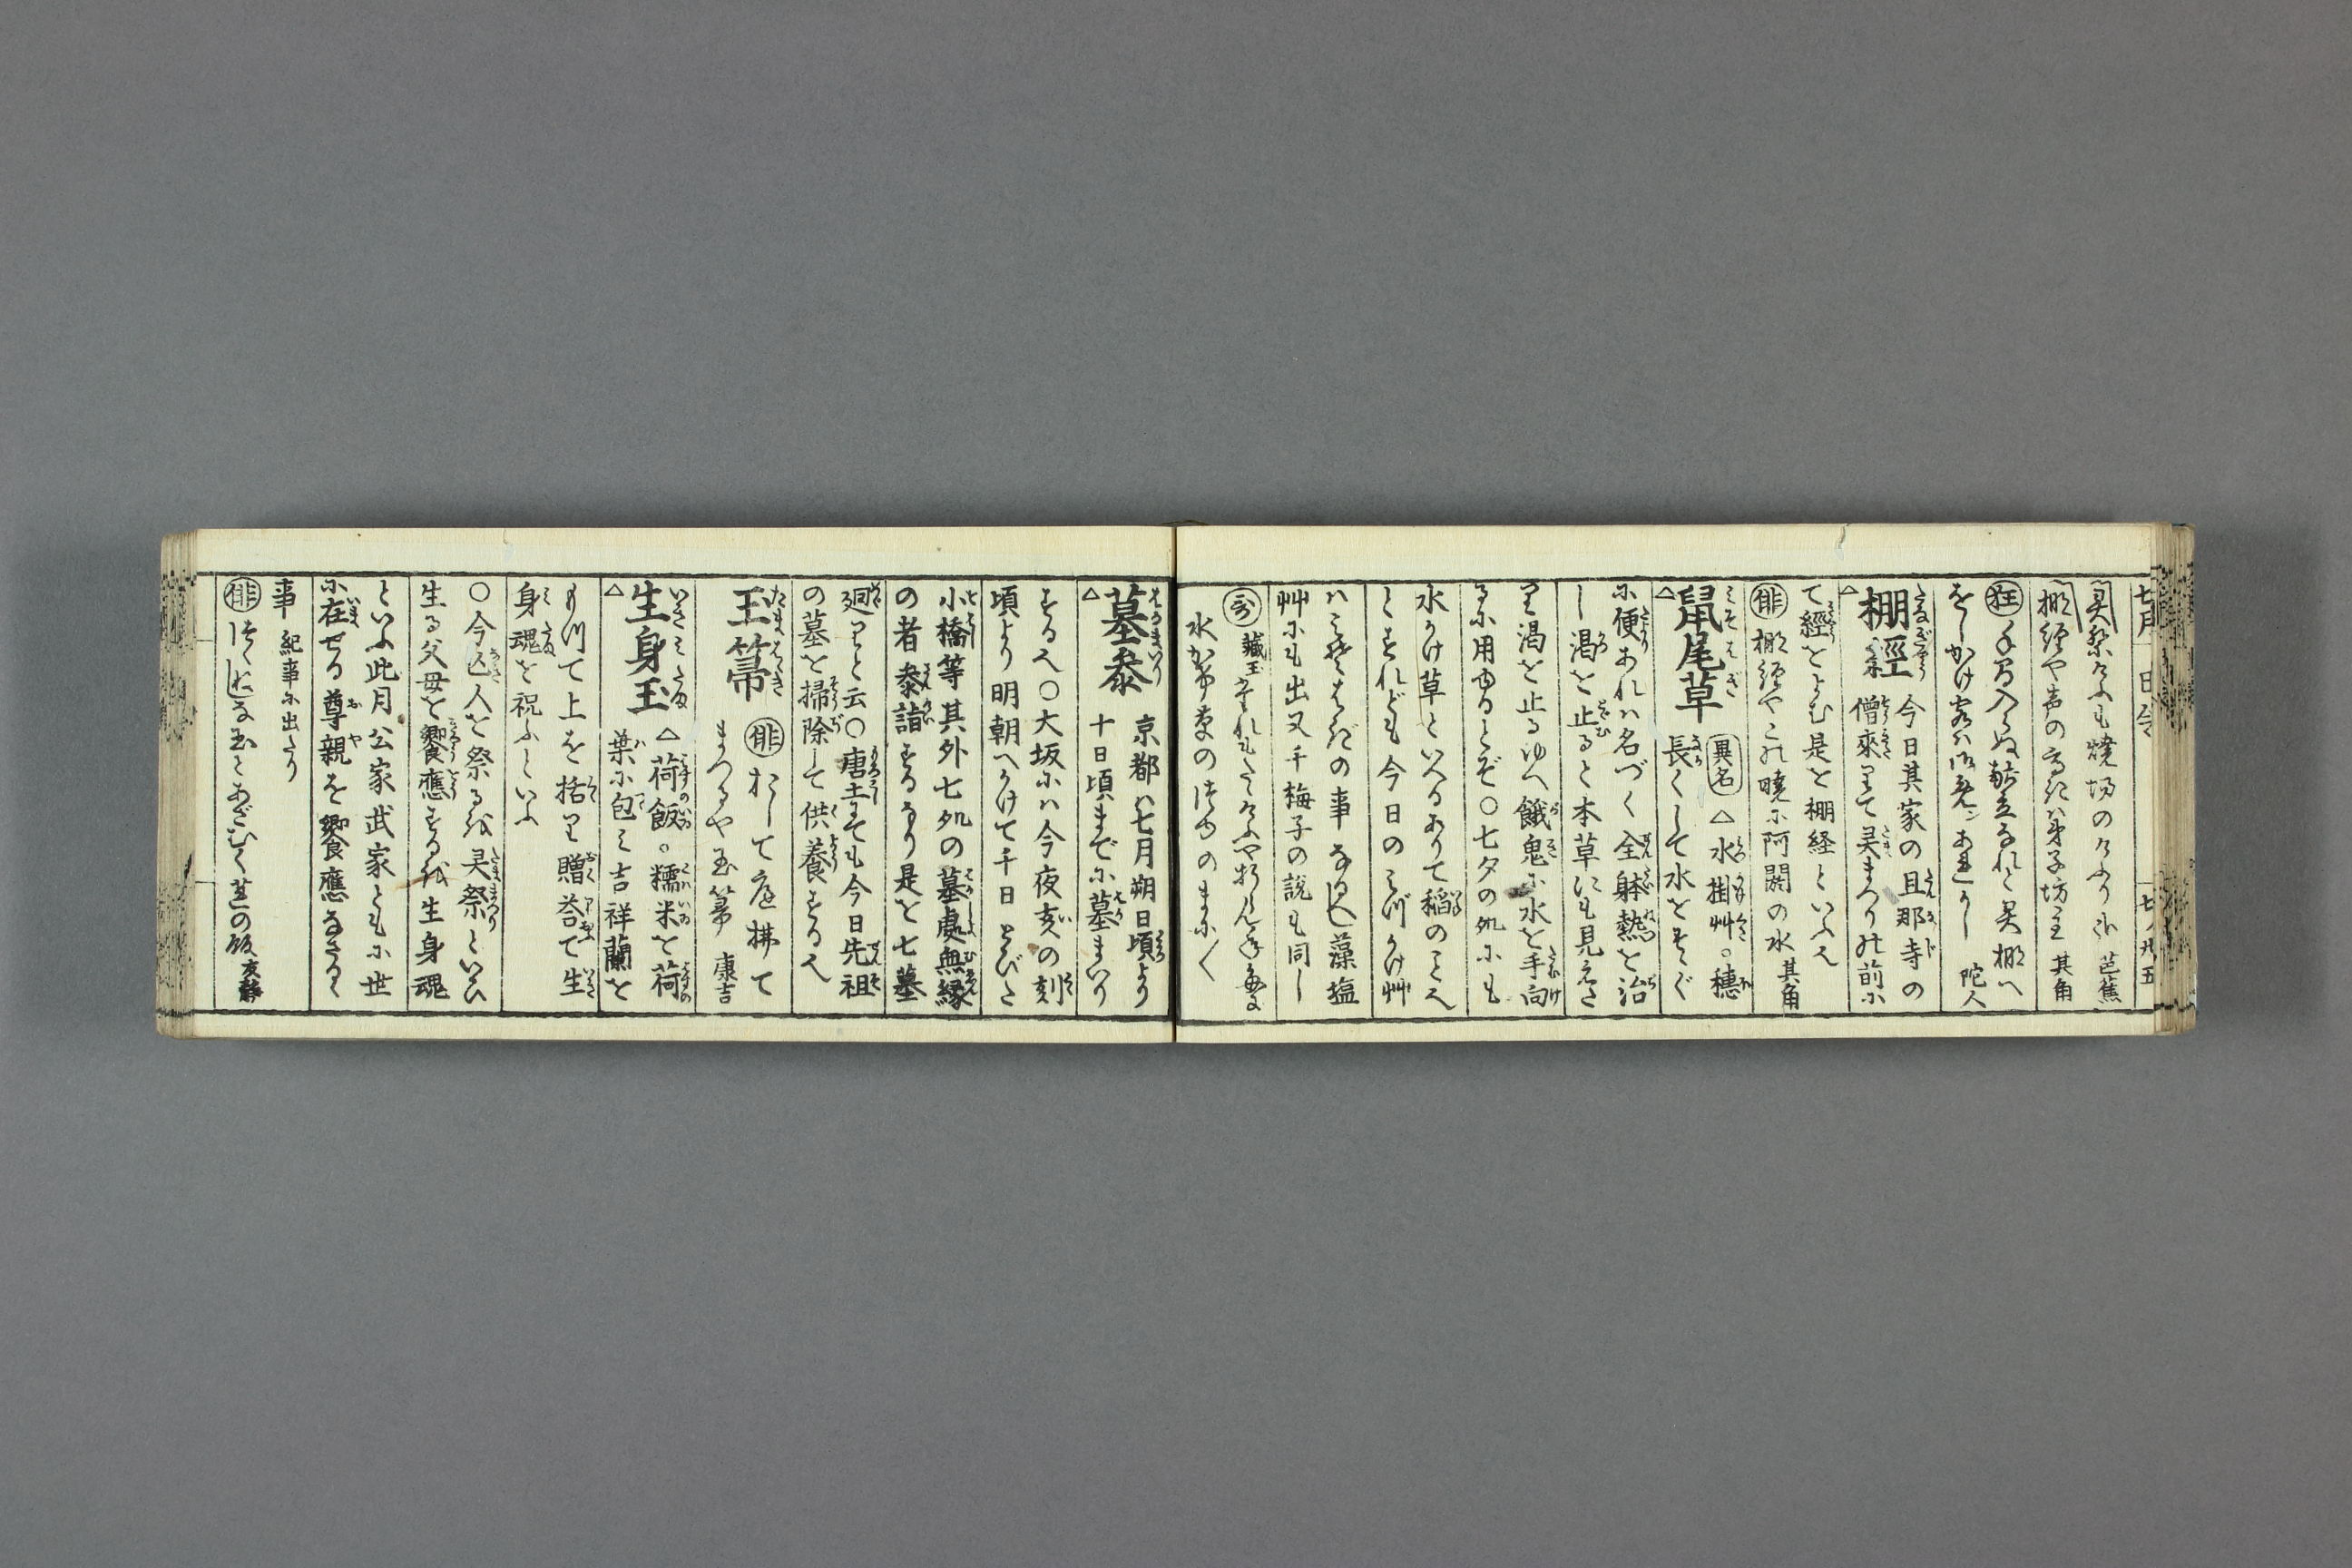 七月 日令 七ノ廿五
灵祭けふも焼場のけふり哉 芭蕉
棚経や声の高きは弟子坊主 其角
狂
をしかけ客は 陀人
棚經 今日其家の旦那寺の
僧来りて灵まつりの前に
て經をよむ是を棚経といふ也
俳 棚経やこの暁に阿閦の水 其角
鼡尾草 異名 △水掛艸。穂
長くして水をそゝぐ
に便あれは名づく全躰熱を治
し渇を止ると本草にも見えた
り渇を止るゆへ餓鬼に水を手向
るに用ゆるとぞ○七夕の処にも
水かけ草といへるありて稲のこと也
とすれども今日のみづかけ艸
はみそはぎの事なるべし藻塩
艸にも出又千梅子の説も同し
哥 藏玉
水かけ草の
墓参 京都は七月朔日頃より
△ 十日頃までに墓まいり
する也○大坂には今夜亥の刻
頃より明朝へかけて千日とびた
小橋等其外七処の墓處無縁
の者参詣するなり是を七墓
廻りと云○唐土にても今日先祖
の墓を掃除して供養する也
玉箒 俳 おしなて庭拂て
まつるや玉箒 康吉
生身玉 △荷飯。糯米を荷
△ 葉に包み吉祥蘭を
もつて上を括り贈荅て生
身魂を祝ふといふ
○今亡人を祭るを灵祭といひ
生る父母を饗應するを生身魂
といふ此月公家武家ともに世
に在せる尊親を饗應なさるゝ
事 紀事に出たり
俳 玉とあざむく蓮の飯 友静